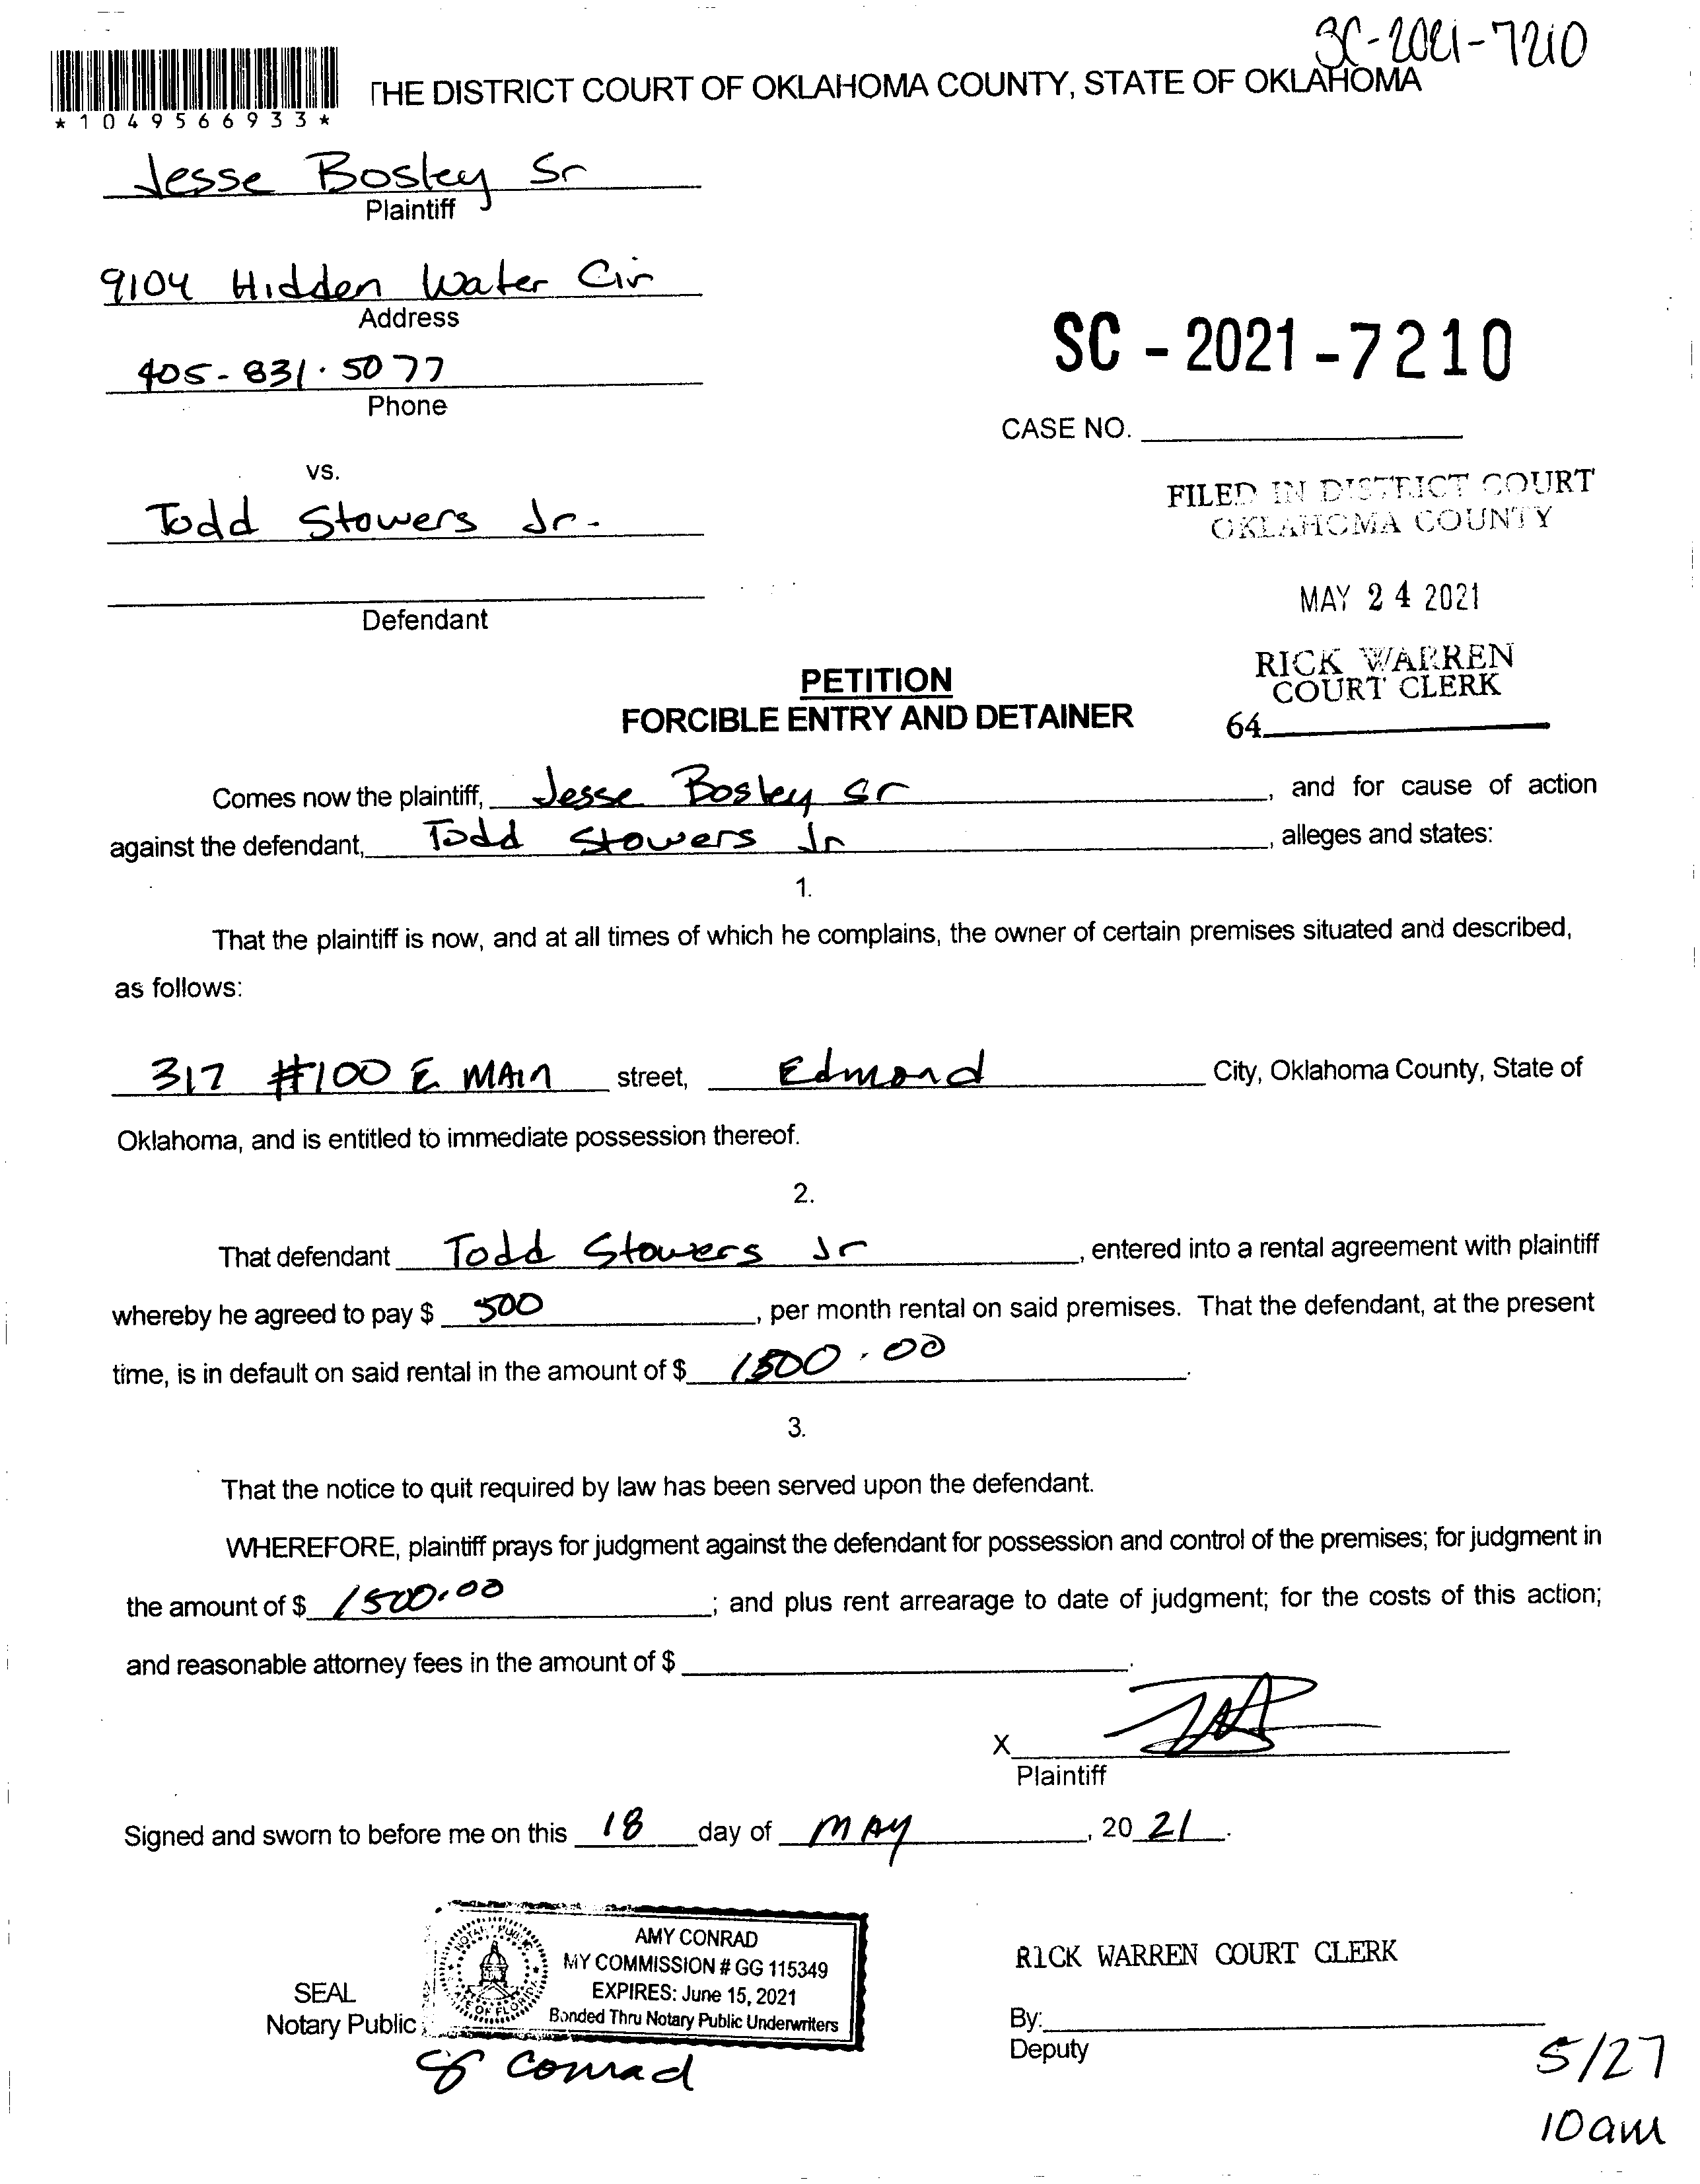 SC-2021-7210
THE DISTRICT COURT OF OKLAHOMA COUNTY, STATE OF OKLAHOMA
*1049566933*
Jesse Bosley Sr
Plaintiff
9104 Hidden Water Cir
Address
405-831-5077
Phone
SC-2021-7210
CASE NO.
vs.
Todd Stowers Jr.
Defendant
FILED IN DISTRICT COURT
OKLAHOMA COUNTY
MAY 24 2021
RICK WARREN
COURT CLERK
64
PETITION
FORCIBLE ENTRY AND DETAINER
Comes now the plaintiff, Jesse Bosley Sr, and for cause of action
against the defendant, Todd Stowers Jr, alleges and states:
1.
That the plaintiff is now, and at all times of which he complains, the owner of certain premises situated and described,
as follows:
317 #100 E MAIN street, Edmond City, Oklahoma County, State of
Oklahoma, and is entitled to immediate possession thereof.
2.
That defendant Todd Stowers Jr, entered into a rental agreement with plaintiff
whereby he agreed to pay $ 500, per month rental on said premises. That the defendant, at the present
time, is in default on said rental in the amount of $ 1500.00.
3.
That the notice to quit required by law has been served upon the defendant.
WHEREFORE, plaintiff prays for judgment against the defendant for possession and control of the premises; for judgment in
the amount of $ 1500.00; and plus rent arrearage to date of judgment; for the costs of this action;
and reasonable attorney fees in the amount of $ .
X
Plaintiff
Signed and sworn to before me on this 18 day of MAY, 20 21.
SEAL
Notary Public
NOTARY PUBLIC
STATE OF FLORIDA
AMY CONRAD
MY COMMISSION # GG 115349
EXPIRES: June 15, 2021
Bonded Thru Notary Public Underwriters
Conrad
RICK WARREN COURT CLERK
By:
Deputy
5/27
10am